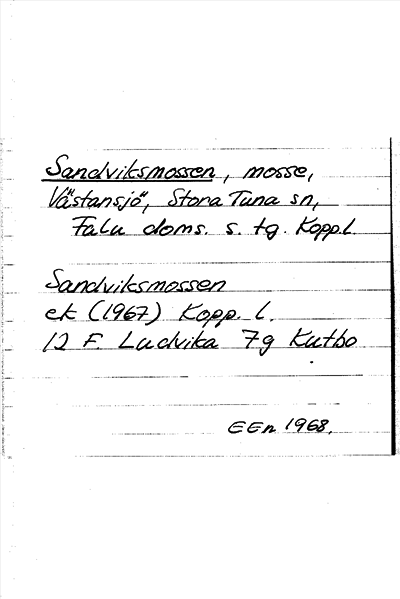 Sandviksmossen, mosse,
Västansjö, Stora Tuna sn,
Falu doms. s. tg. Kopp.l.
Sandviksmossen
ek (1967) Kopp. l.
12 F. Ludvika 7g Kutbo
EEn 1968.